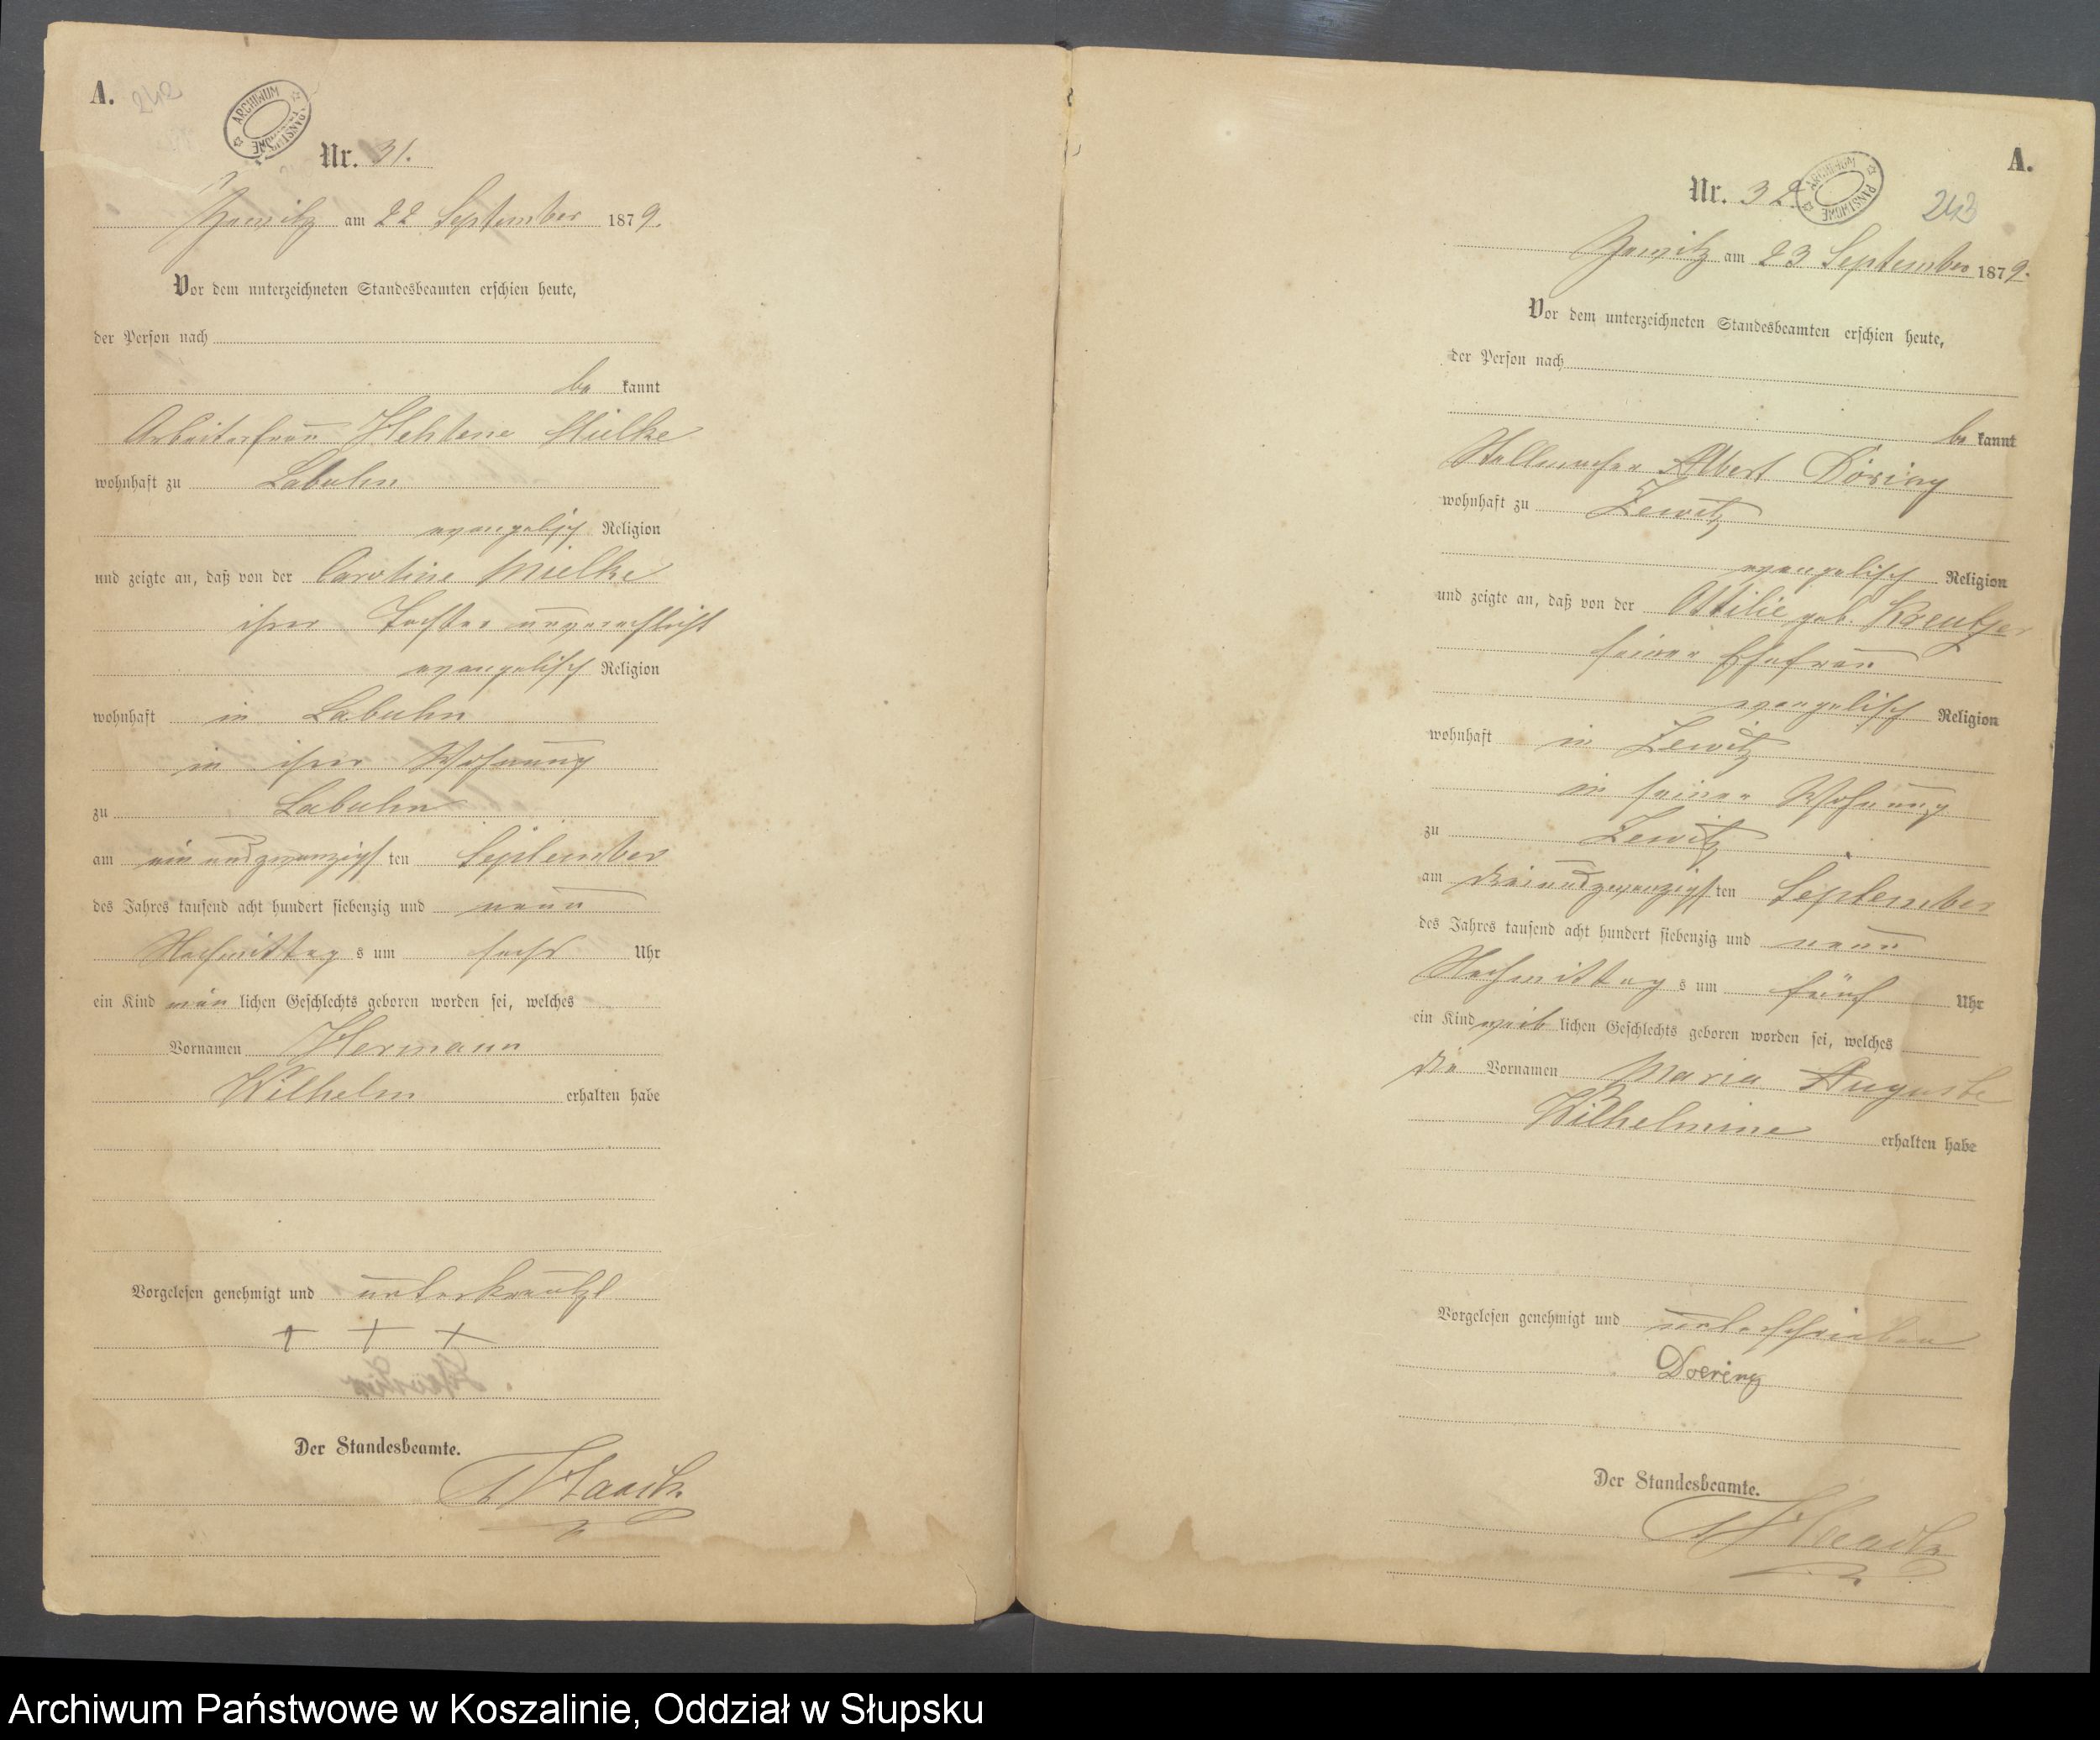 A.
242
ARCHIWUM PAŃSTWOWE
Nr. 31.
am 22 September 1879.
Vor dem unterzeichneten Standesbeamten erschien heute,
der Person nach
be kannt
Arbeiterfrau Mielke
wohnhaft zu Labuhn
evangelisch Religion
und zeigte an, daß von der Caroline Mielke
ihrer Tochter unverehelicht
evangelisch Religion
wohnhaft in Labuhn
in ihrer Wohnung
zu Labuhn
am ein und zwanzigsten September
des Jahres tausend acht hundert siebenzig und neun
Nachmittag s um sechs Uhr
ein Kind män lichen Geschlechts geboren worden sei, welches
Vornamen Hermann
Wilhelm erhalten habe
Vorgelesen genehmigt und unterkreutzt
+ + +
Der Standesbeamte.
A.
Nr. 32.
ARCHIWUM PAŃSTWOWE
243
am 23 September 1879.
Vor dem unterzeichneten Standesbeamten erschien heute,
der Person nach
be kannt
Stellmacher Albert Döring
wohnhaft zu Zewitz
evangelisch Religion
und zeigte an, daß von der Ottilie geb. Kreutzer
seiner Ehefrau
evangelisch Religion
wohnhaft in Zewitz
in seiner Wohnung
zu Zewitz
am dreiundzwanzigsten September
des Jahres tausend acht hundert siebenzig und neun
Nachmittag s um fünf Uhr
ein Kind weib lichen Geschlechts geboren worden sei, welches
die Vornamen Maria Auguste
Wilhelmine erhalten habe
Vorgelesen genehmigt und unterschrieben
Doering
Der Standesbeamte.
Archiwum Państwowe w Koszalinie, Oddział w Słupsku